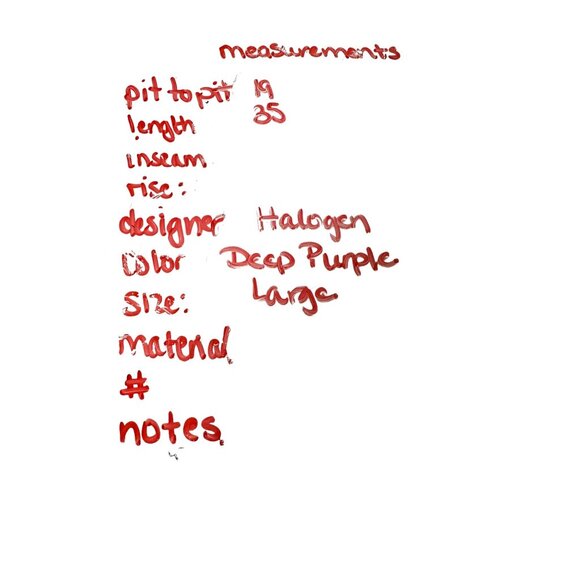 measurements
pit to pit 19
length 35
inseam
rise:
designer Halogen
color Deep Purple
size: Large
material
#
notes